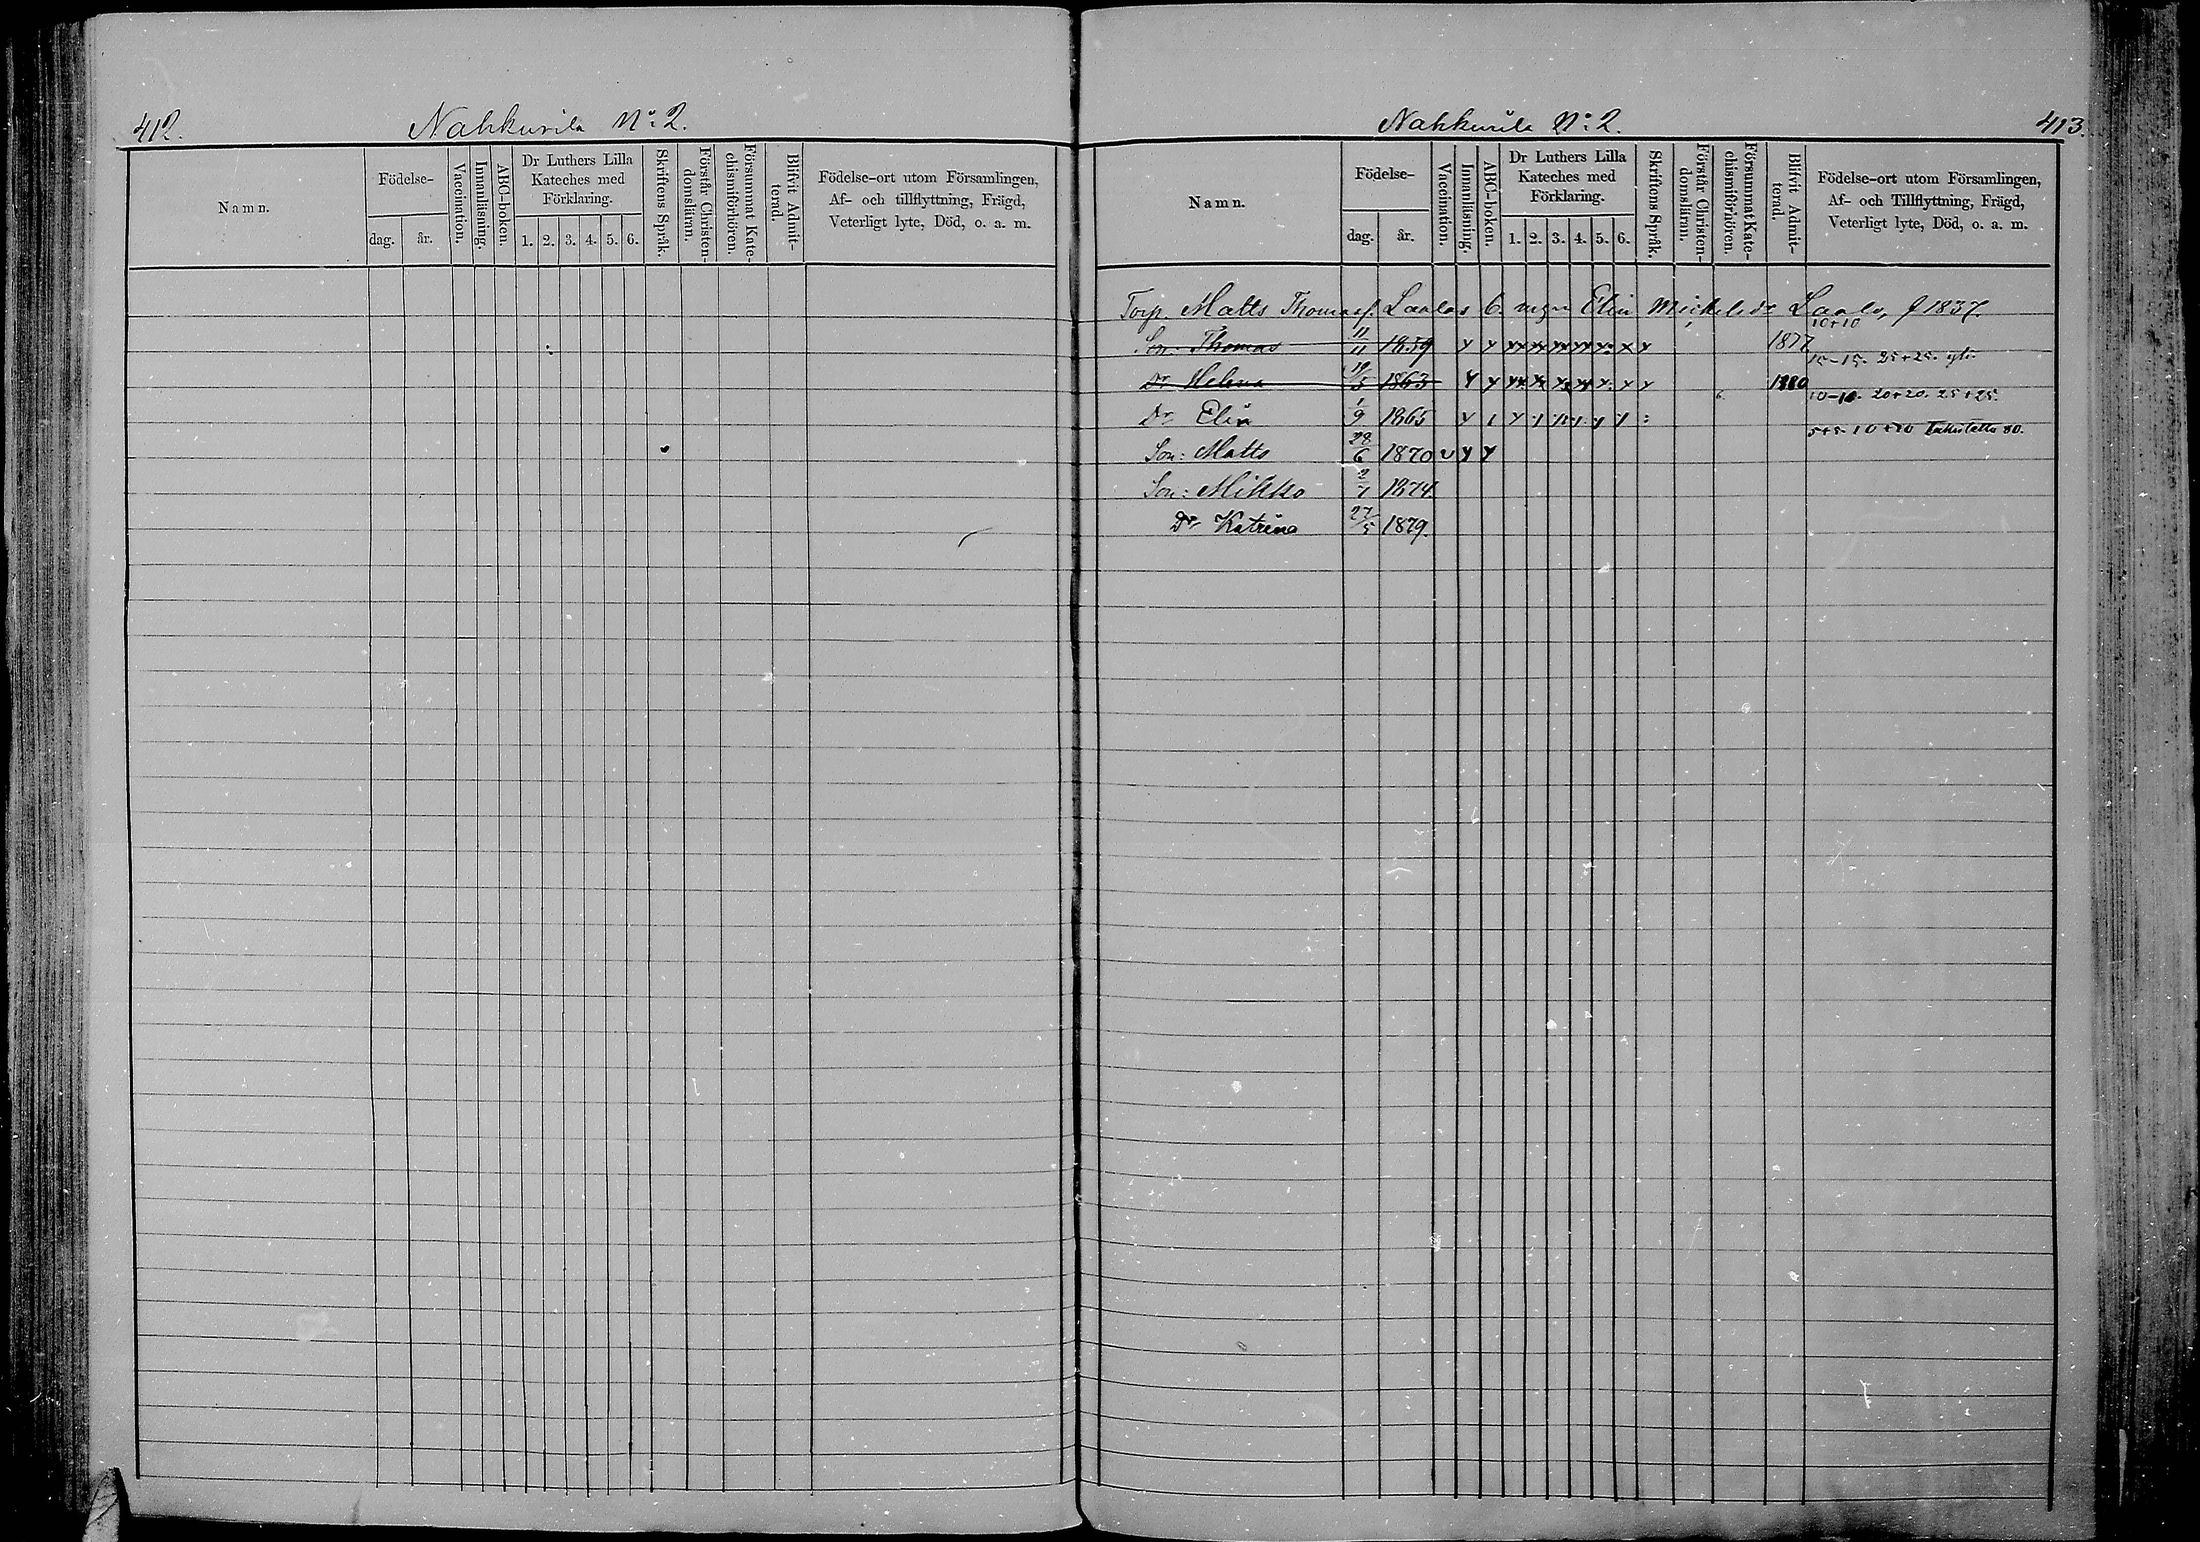 412.
Nahkurila No: 2.
Namn.
Födelse-
dag.
år.
Vaccination.
Innanläsning.
ABC-boken.
Dr Luthers Lilla
Kateches med
Förklaring.
1. 2. 3. 4. 5. 6.
Skriftens Språk.
Förstår Christen-
domsläran.
Försummat Kate-
chismiförhören.
Blifvit Admit-
terad.
Födelse-ort utom Församlingen,
Af- och tillflyttning, Frägd,
Veterligt lyte, Död, o. a. m.
Nahkurila No: 2.
413.
Namn.
Födelse-
dag.
år.
Vaccination.
Innanläsning.
ABC-boken.
Dr Luthers Lilla
Kateches med
Förklaring.
1. 2. 3. 4. 5. 6.
Skriftens Språk.
Förstår Christen-
domsläran.
Försummat Kate-
chismiförhören.
Blifvit Admit-
terad.
Födelse-ort utom Församlingen,
Af- och Tillflyttning, Frägd,
Veterligt lyte, Död, o. a. m.
Torp. Matts Thomass. Laalas b. Elin Mickelsdr Laalo, f 1837.
Son: Thomas 11/11 1859 1877 10+10
Dr Helena 19/5 1863 1880 10-15. 25+25.
Dr Elin 1/9 1865 10-10. 20+20. 25+25.
Son: Matts 28/6 1870 5+5. 10+10 80.
Son: Mikko 2/1 1874.
Dr Katrina 27/5 1879.